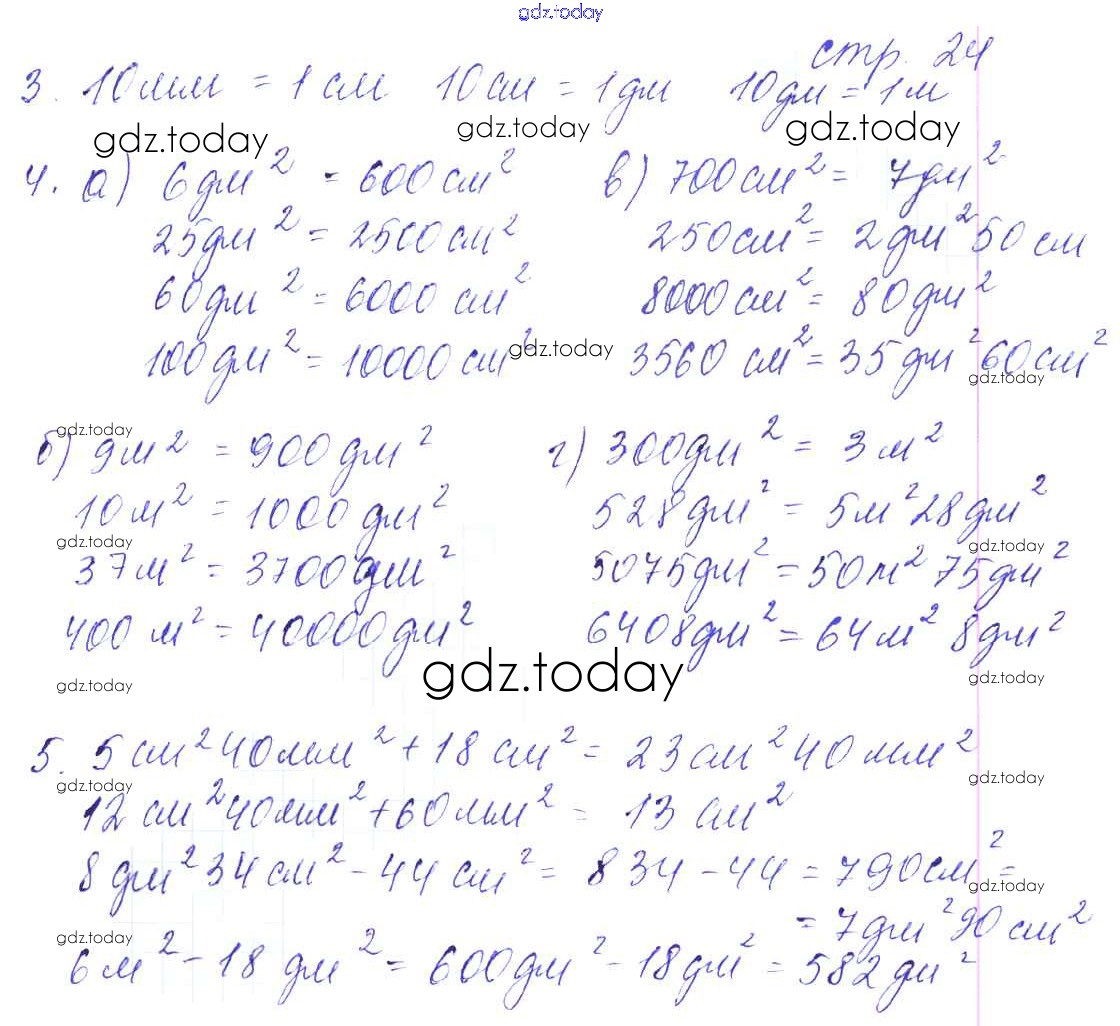 gdz.today
стр. 24
3. 10мм = 1 см 10см = 1дм 10дм = 1м
gdz.today gdz.today gdz.today
4. а) 6дм² = 600см² в) 700см² = 7дм²
25дм² = 2500см² 250см² = 2дм²50см
60дм² = 6000 см² 8000см² = 80дм²
100дм² = 10000см² gdz.today 3560 см² = 35дм²60см²
gdz.today
gdz.today
б) 9м² = 900дм² г) 300дм² = 3м²
10м² = 1000дм² 528дм² = 5м²28дм²
gdz.today gdz.today
37м² = 3700дм² 5075дм² = 50м² 75дм²
400 м² = 40000дм² 6408дм² = 64м² 8дм²
gdz.today gdz.today gdz.today
5. 5 см²40мм² + 18 см² = 23см²40мм²
gdz.today gdz.today
12 см²40мм² + 60мм² = 13 см²
8дм²34см² - 44см² = 834 - 44 = 790см² =
gdz.today
= 7дм²90см²
gdz.today
6м² - 18 дм² = 600дм² - 18дм² = 582дм²
gdz.today